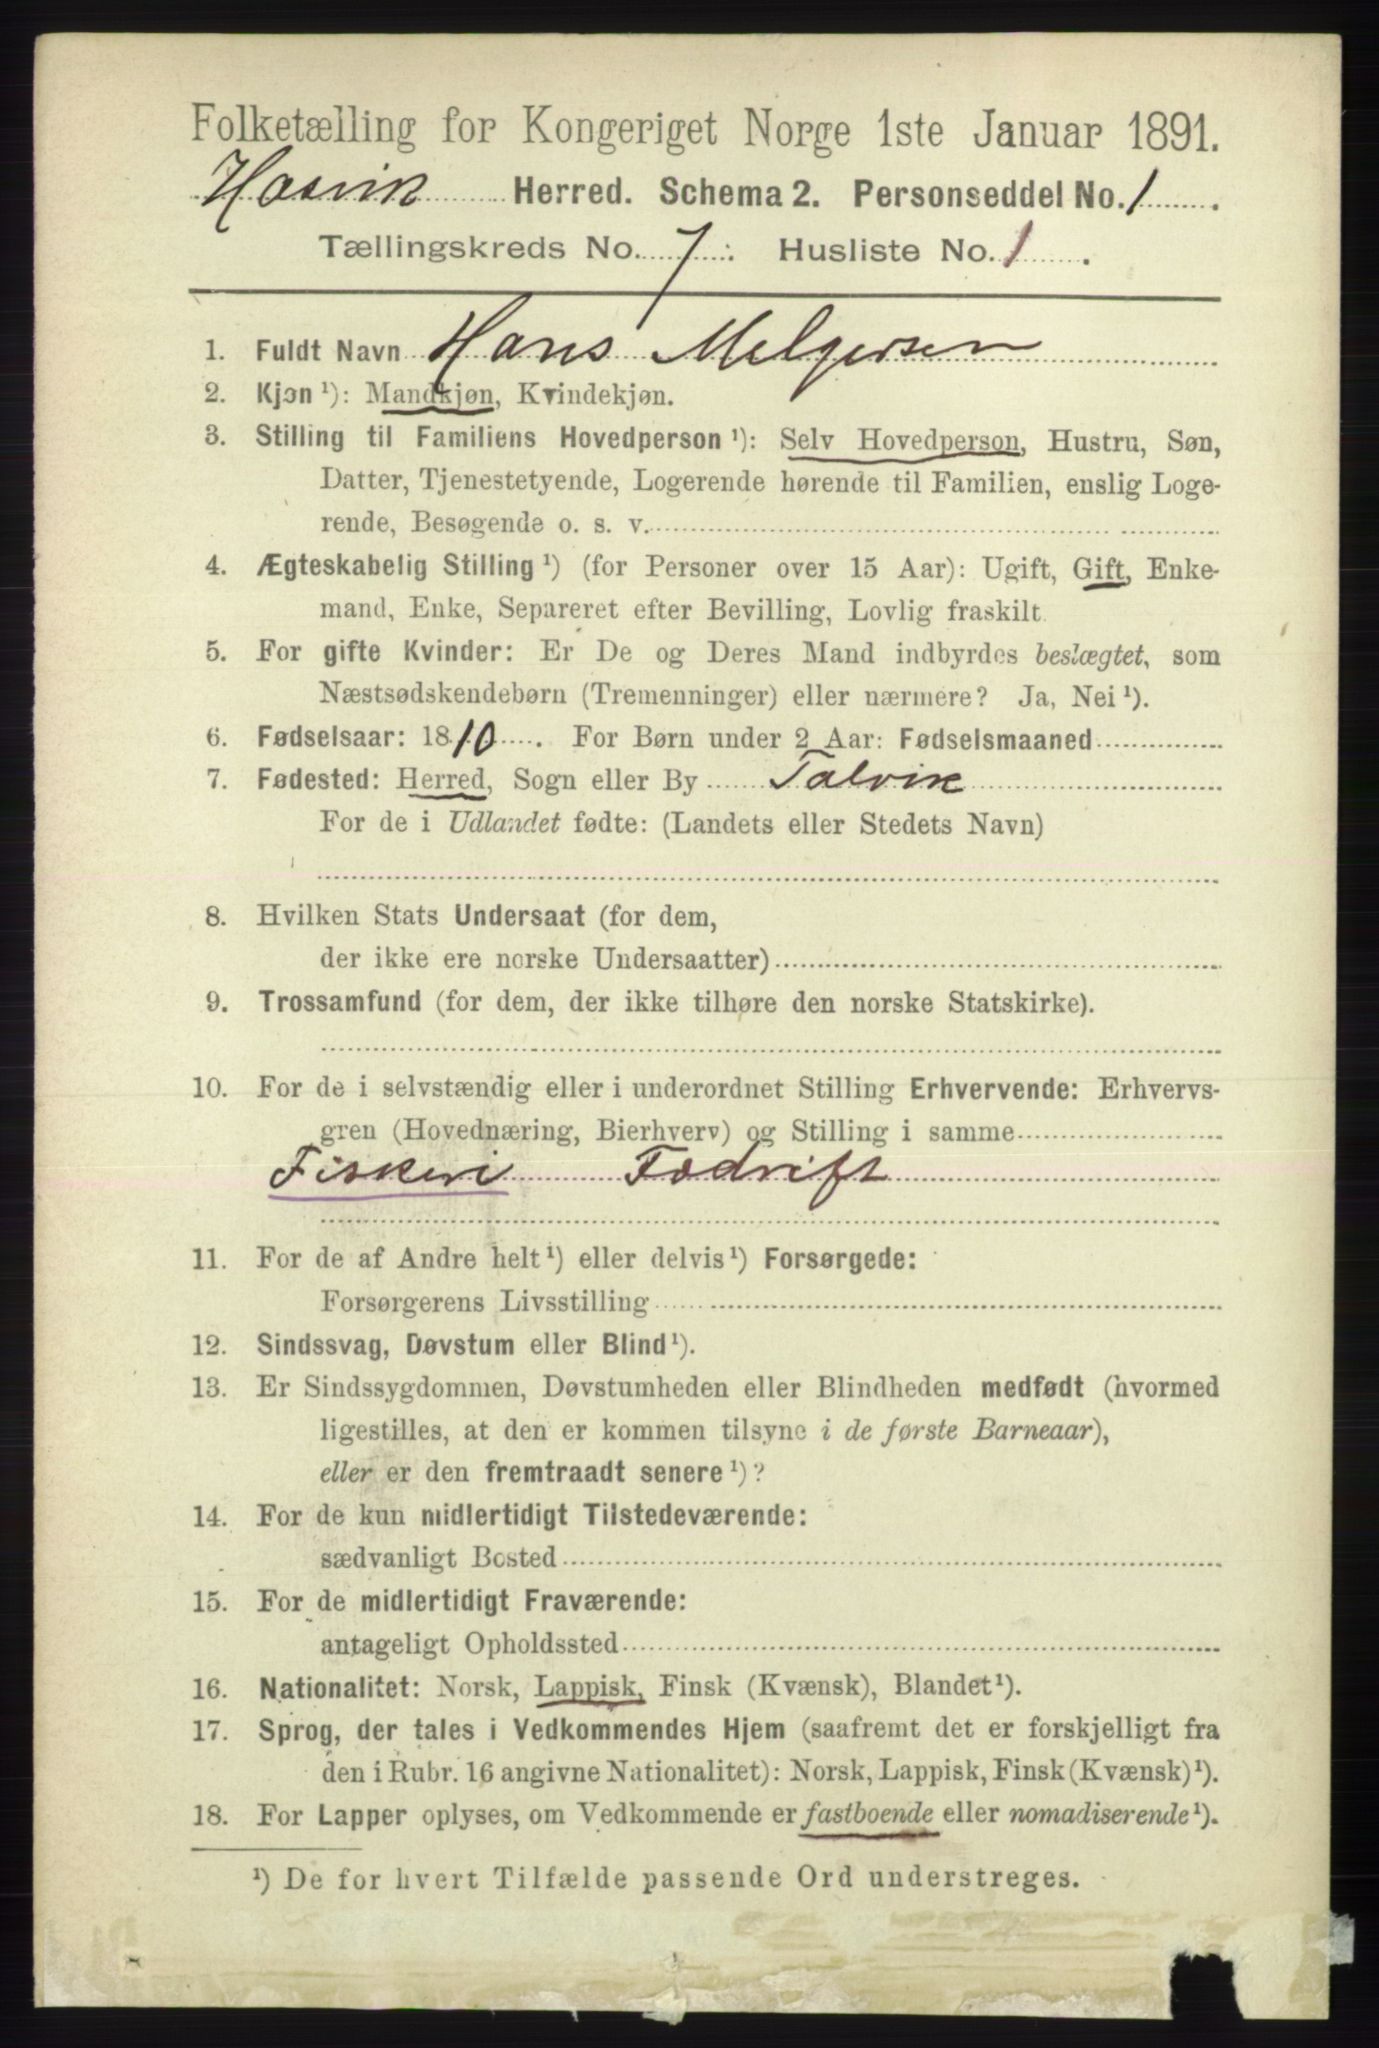 Folketælling for Kongeriget Norge 1ste Januar 1891.
Hasvik Herred. Schema 2. Personseddel No. 1.
Tællingskreds No. 7. Husliste No. 1.
1. Fuldt Navn Hans Melgersen
2. Kjøn ¹): Mandkjøn, Kvindekjøn.
3. Stilling til Familiens Hovedperson ¹): Selv Hovedperson, Hustru, Søn,
Datter, Tjenestetyende, Logerende hørende til Familien, enslig Loge-
rende, Besøgende o. s. v.
4. Ægteskabelig Stilling ¹) (for Personer over 15 Aar): Ugift, Gift, Enke-
mand, Enke, Separeret efter Bevilling, Lovlig fraskilt.
5. For gifte Kvinder: Er De og Deres Mand indbyrdes beslægtet, som
Næstsødskendebørn (Tremenninger) eller nærmere? Ja, Nei ¹).
6. Fødselsaar: 1810. For Børn under 2 Aar: Fødselsmaaned
7. Fødested: Herred, Sogn eller By Talvik
For de i Udlandet fødte: (Landets eller Stedets Navn)
8. Hvilken Stats Undersaat (for dem,
der ikke ere norske Undersaatter)
9. Trossamfund (for dem, der ikke tilhøre den norske Statskirke).
10. For de i selvstændig eller i underordnet Stilling Erhvervende: Erhvervs-
gren (Hovednæring, Bierhverv) og Stilling i samme
Fiskeri Fædrift
11. For de af Andre helt ¹) eller delvis ¹) Forsørgede:
Forsørgerens Livsstilling
12. Sindssvag, Døvstum eller Blind ¹).
13. Er Sindssygdommen, Døvstumheden eller Blindheden medfødt (hvormed
ligestilles, at den er kommen tilsyne i de første Barneaar),
eller er den fremtraadt senere ¹)?
14. For de kun midlertidigt Tilstedeværende:
sædvanligt Bosted
15. For de midlertidigt Fraværende:
antageligt Opholdssted
16. Nationalitet: Norsk, Lappisk, Finsk (Kvænsk), Blandet ¹).
17. Sprog, der tales i Vedkommendes Hjem (saafremt det er forskjelligt fra
den i Rubr. 16 angivne Nationalitet): Norsk, Lappisk, Finsk (Kvænsk) ¹).
18. For Lapper oplyses, om Vedkommende er fastboende eller nomadiserende ¹).
¹) De for hvert Tilfælde passende Ord understreges.